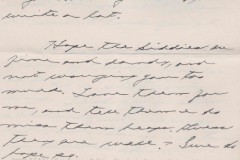 write a lot.
Hope the kiddies are
fine and dandy, and
not worrying you too
much. Love them for
me, and tell them I do
miss them heaps. Guess
they are well? Sure do
hope so.